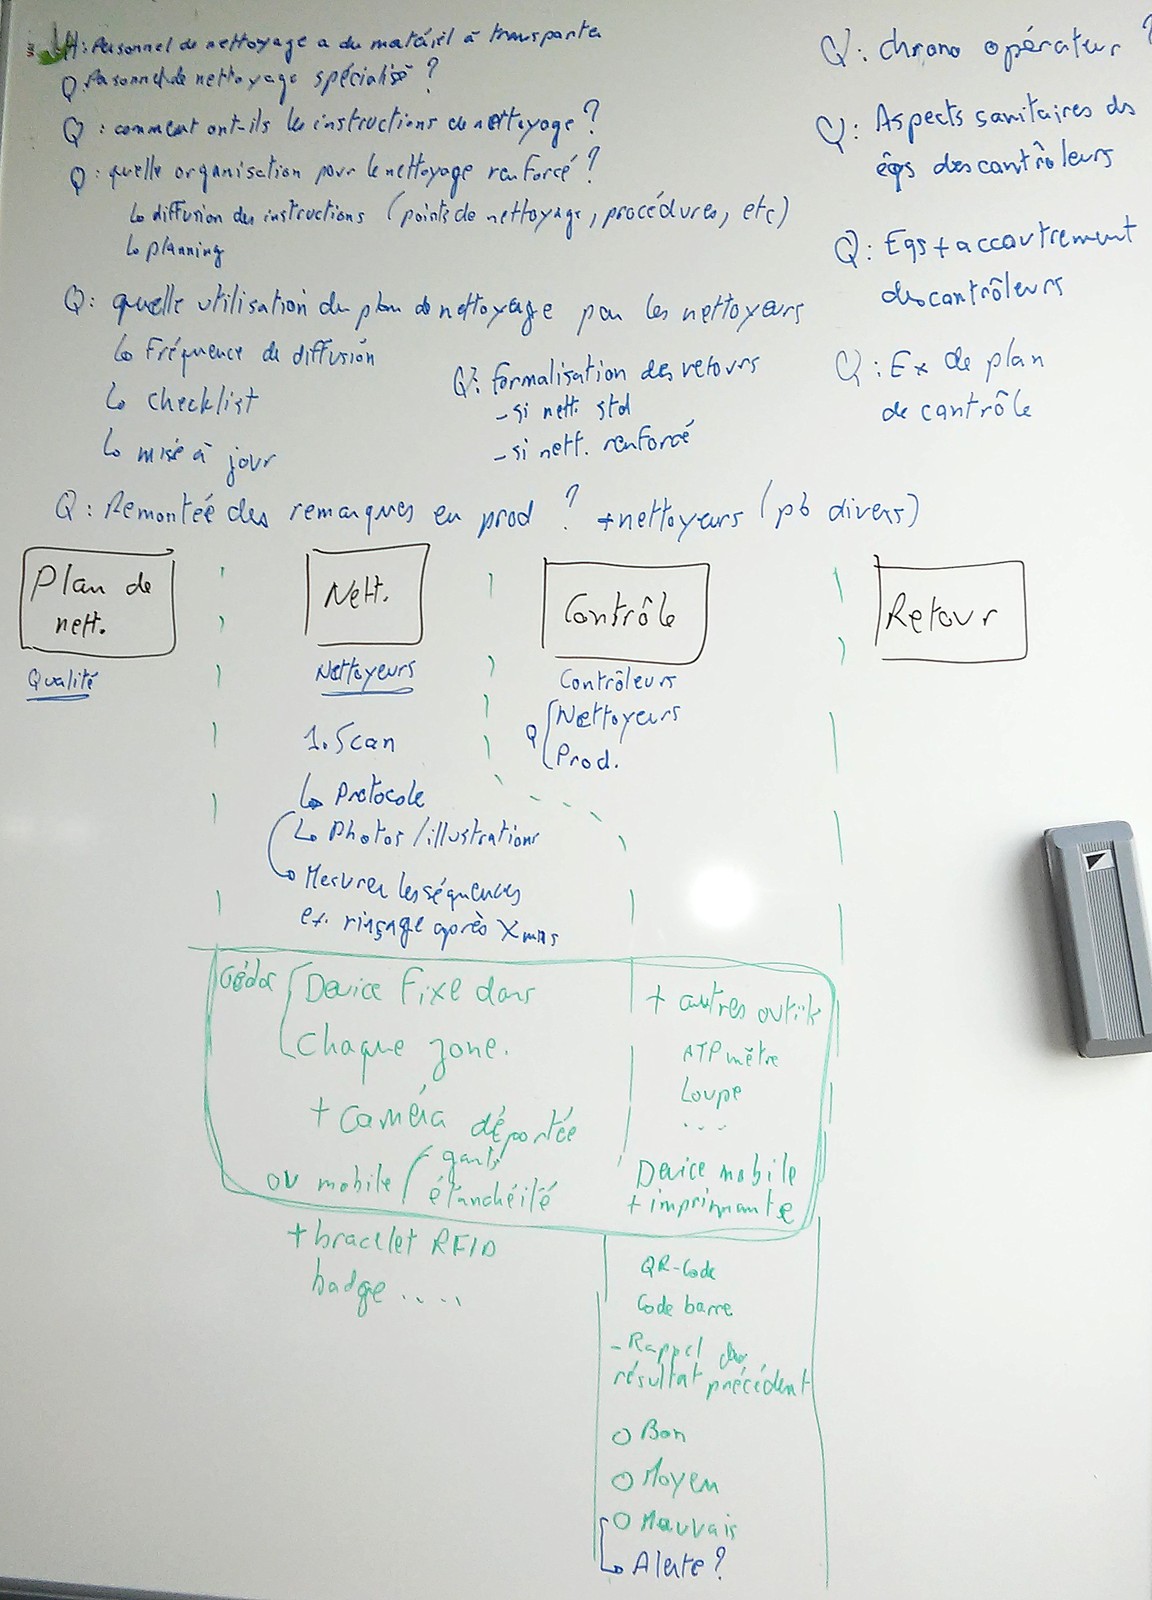 H: Personnel de nettoyage a du matériel à transporter
Q: Personnel de nettoyage spécialisé ?
Q: comment ont-ils les instructions de nettoyage ?
Q: quelle organisation pour le nettoyage renforcé ?
↳ diffusion des instructions (points de nettoyage, procédures, etc)
↳ planning
Q: quelle utilisation du plan de nettoyage par les nettoyeurs
↳ Fréquence de diffusion
↳ checklist
↳ mise à jour
Q: formalisation des retours
- si nett. std
- si nett. renforcé
Q: Remontée des remarques en prod ? + nettoyeurs (pb divers)
Q: chrono opérateur ?
Q: Aspects sanitaires des
éqs des contrôleurs
Q: Eqs + accoutrement
des contrôleurs
Q: Ex de plan
de contrôle
Plan de
nett.
Qualité
Nett.
Nettoyeurs
1. Scan
↳ Protocole
↳ Photos / illustrations
↳ Mesurer les séquences
ex. rinçage après X mns
Contrôle
Contrôleurs
Q Nettoyeurs
Prod.
Retour
Device Fixe dans
chaque zone.
+ caméra déportée
ou mobile gants
étanchéité
+ bracelet RFID
badge ....
+ autres outils
ATP mètre
Loupe
...
Device mobile
+ imprimante
QR-Code
Code barre
- Rappel du
résultat précédent
O Bon
O Moyen
O Mauvais
↳ Alerte ?